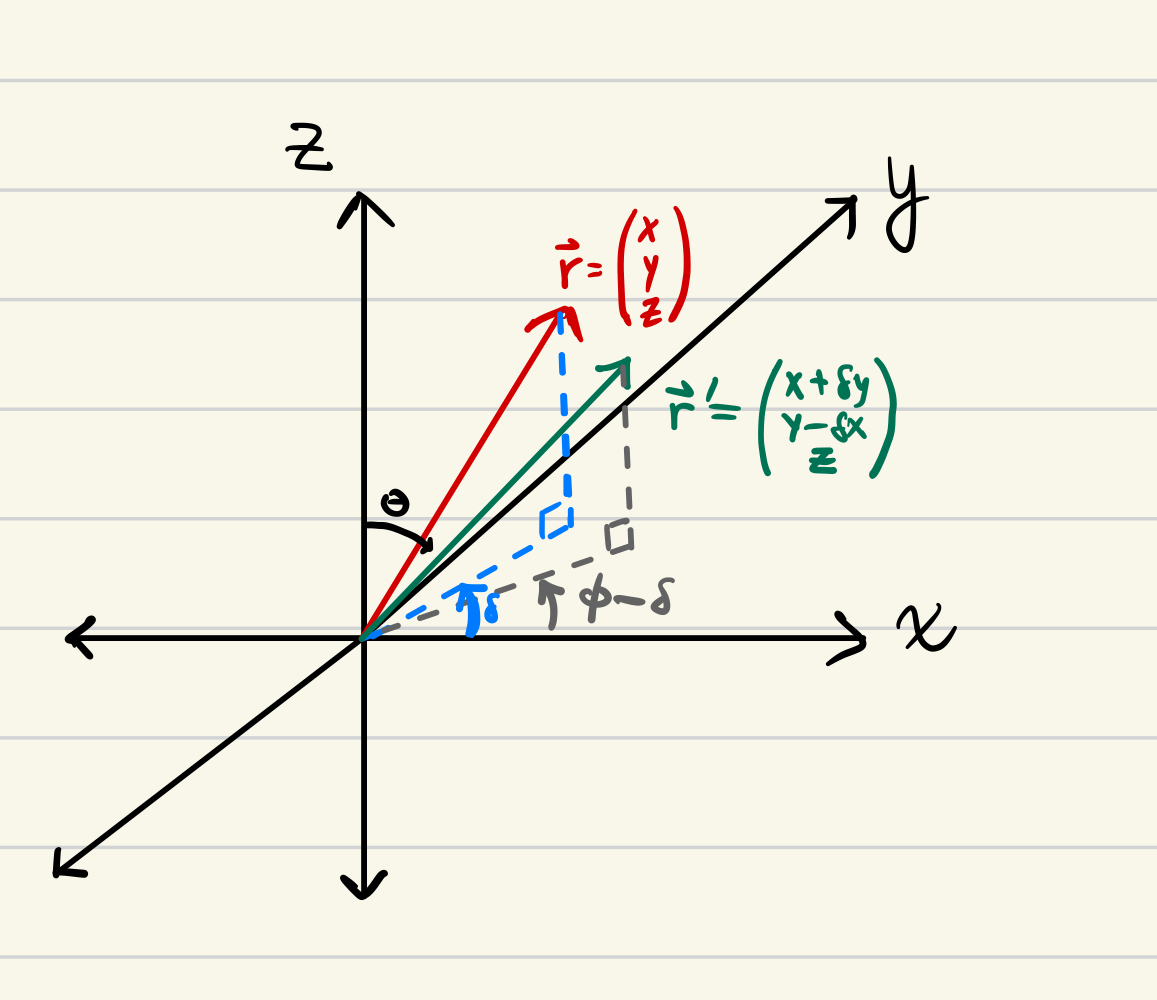 z
y
r⃗ = (x
y
z)
r⃗′ = (x + δy
y − δx
z)
θ
δ
ϕ − δ
x